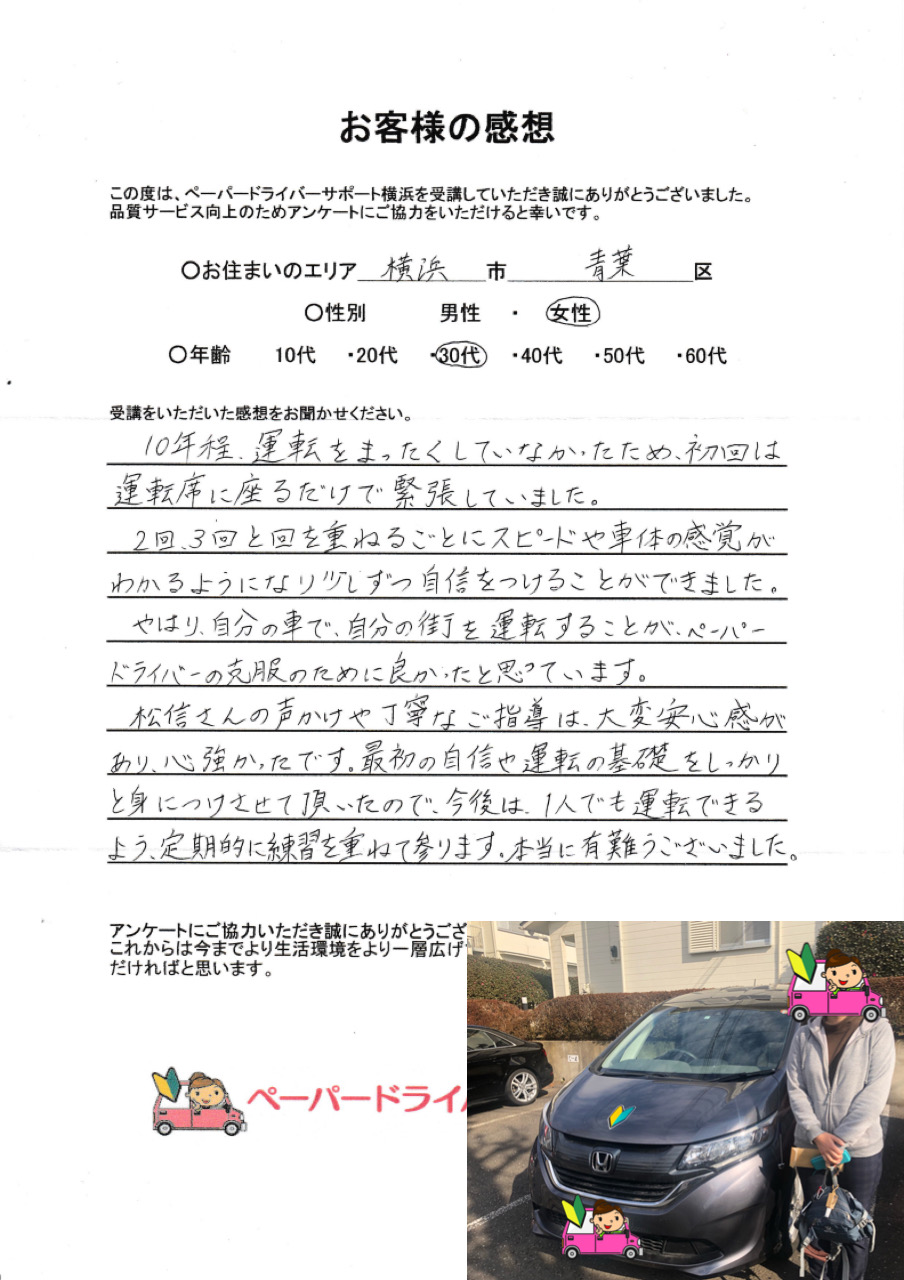 お客様の感想
この度は、ペーパードライバーサポート横浜を受講していただき誠にありがとうございました。
品質サービス向上のためアンケートにご協力をいただけると幸いです。
〇お住まいのエリア 横浜 市 青葉 区
〇性別 男性 ・ 女性
〇年齢 10代 ・20代 ・30代 ・40代 ・50代 ・60代
受講をいただいた感想をお聞かせください。
10年程、運転をまったくしていなかったため、初回は
運転席に座るだけで緊張していました。
2回、3回と回を重ねるごとにスピードや車体の感覚が
わかるようになり少しずつ自信をつけることができました。
やはり、自分の車で、自分の街を運転することが、ペーパー
ドライバーの克服のために良かったと思っています。
松信さんの声かけや丁寧なご指導は、大変安心感が
あり、心強かったです。最初の自信や運転の基礎をしっかり
と身につけさせて頂いたので、今後は、1人でも運転できる
よう、定期的に練習を重ねて参ります。本当に有難うございました。
アンケートにご協力いただき誠にありがとうござ
これからは今までより生活環境をより一層広げ
だければと思います。
ペーパードライ